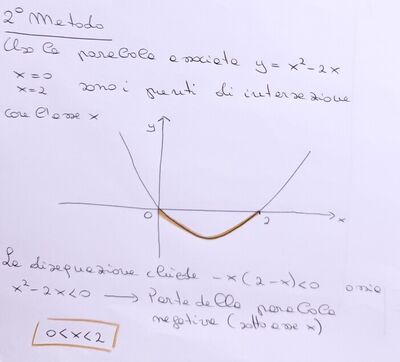 2° Metodo
Uso la parabola associata y = x²-2x
x=0
x=2 sono i punti di intersezione
con l'asse x
y
0 2 x
La disequazione chiede -x(2-x)<0 ossia
x²-2x<0 → Parte della parabola
negativa (sotto asse x)
0<x<2